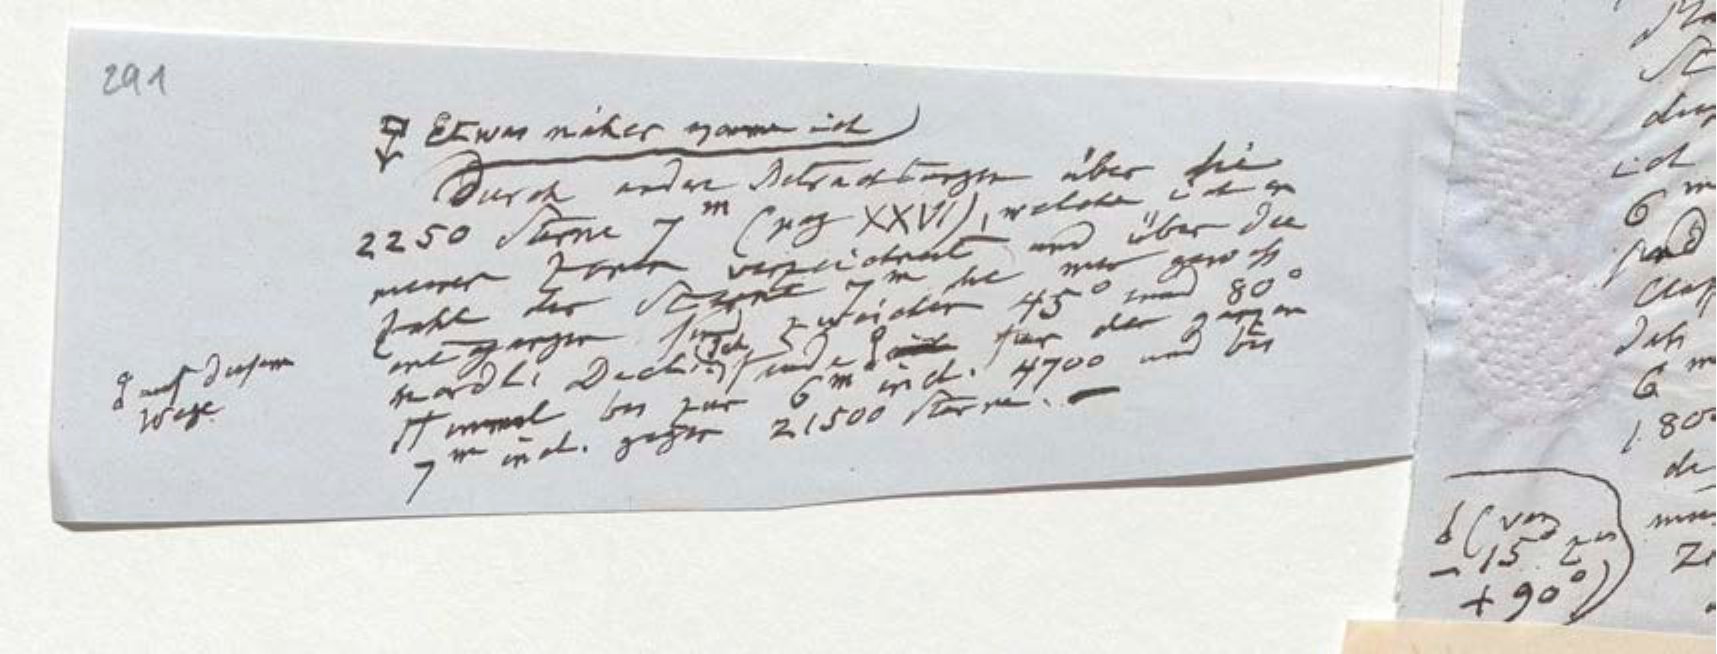 291
Etwas näher komme ich
Durch andere Betrachtungen über die
2250 Sterne 7m (pag XXVI), welche ich in
meinen Zonen verzeichnet und über die
Zahl der Sterne 7m die mir gewiss
entgangen sind zwischen 45° und 80°
nördl. Decl. ich finde für den ganzen
Himmel bis zur 6m incl. 4700 und bis
7m incl. gegen 21500 Sterne. —
auf diesem
Wege
ich
6 m
sind
6 m
180
(von
-15 zu
+90°)